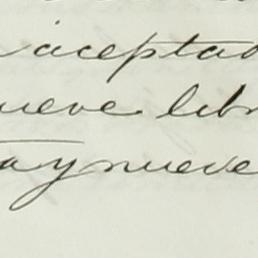 aceptad
ueve lib
ta y nueve